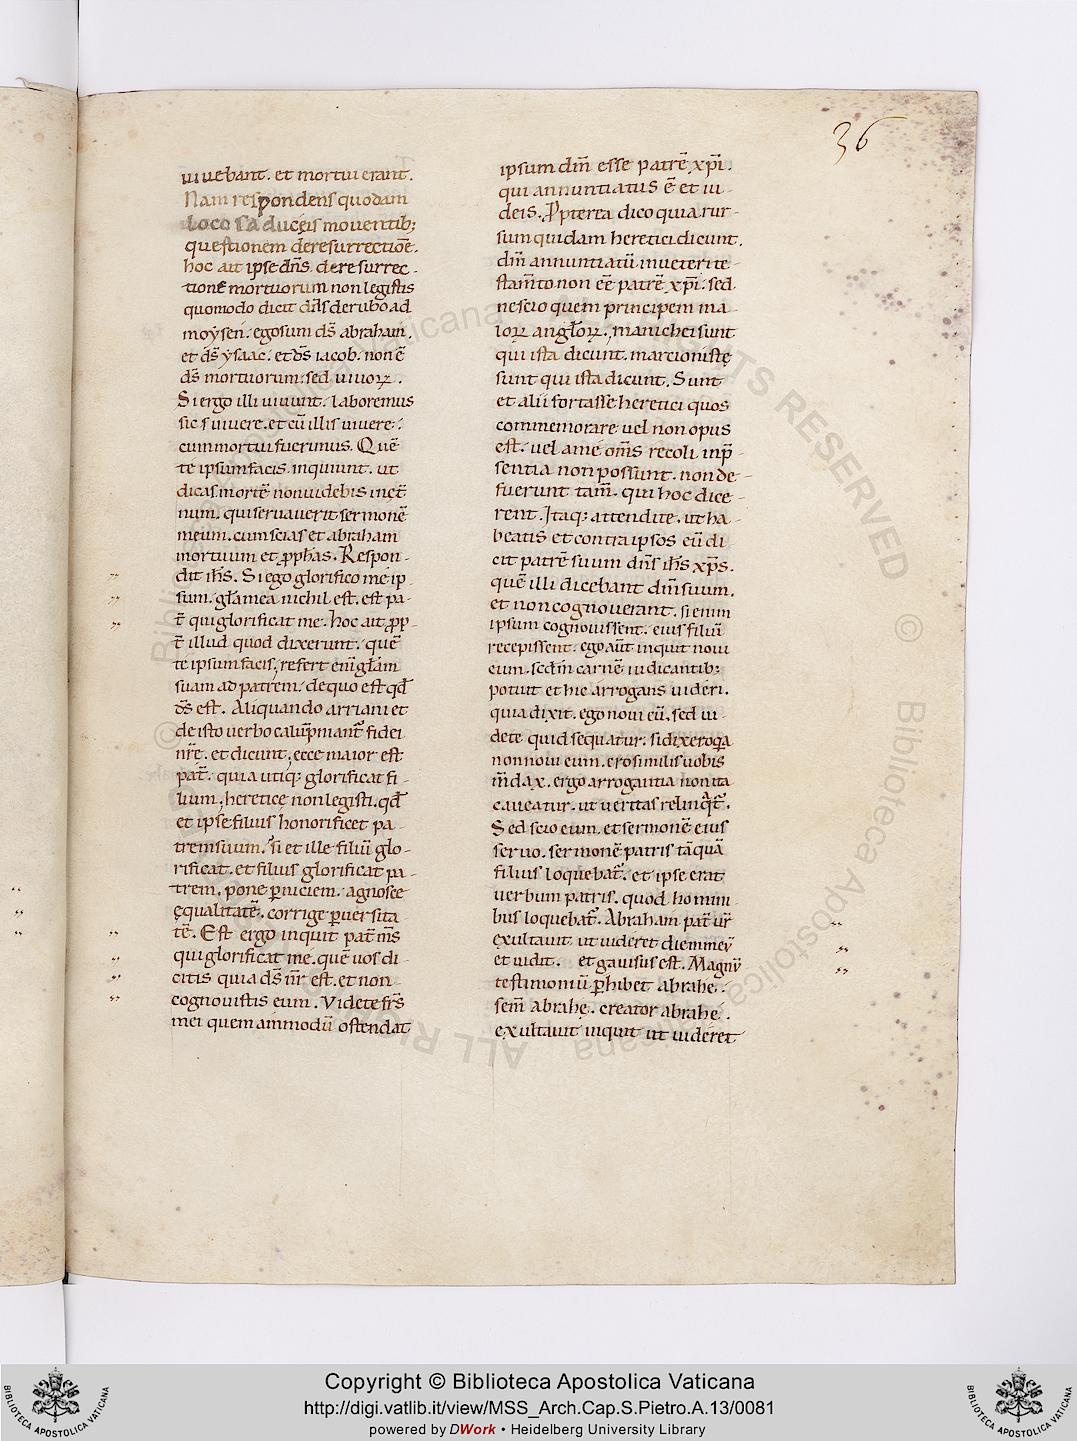 36
uiuebant. et mortui erant.
Nam respondens quodam
loco saduceis mouentib;
questionem de resurrectioē.
hoc ait ipse dn̄s. de resurrec-
tione mortuorum non legistis
quomodo dicit dn̄s de rubo ad
moysen. ego sum ds̄ abraham.
et ds̄ ysaac. et ds̄ iacob. non ē
ds̄ mortuorum. sed uiuoꝝ.
Si ergo illi uiuunt. laboremus
sic uiuere. et cū illis uiuere.
cum mortui fuerimus. Quē
te ipsum facis inquiunt. ut
dicas mortē non uidebit in ęt̄
num. qui seruauerit sermonē
meum. cum scias et abraham
mortuum et ꝓphas. Respon-
dit ih̄s. Si ego glorifico me ip-
sum. gl̄a mea nichil est. est pa-
t̄ qui glorificat me. hoc ait ꝓp-
t̄ illud quod dixerunt. quē
te ipsum facis. refert enī gl̄am
suam ad patrem. de quo est qd̄
ds̄ est. Aliquando arriani et
de isto uerbo calūpniant᷑ fidei
nr̄e. et dicunt. ecce maior est
pat̄. quia utiq; glorificat fi-
lium. heretice non legisti. qd̄
et ipse filius honorificet pa-
trem suum. si et ille filiū glo-
rificat. et filius glorificat pa-
trem. pone ꝑniciem. agnosce
ęqualitatē. corrige ꝑuersita
tē. Est ergo inquit pat̄ ms̄
qui glorificat me. quē uos di-
citis quia ds̄ nr̄ est. et non
cognouistis eum. Videte fr̄s
mei quemammodū ostendat
ipsum dm̄ esse patrē xp̄i.
qui annuntiatus ē et iu-
deis. Ꝓpterea dico quia rur-
sum quidam heretici dicunt.
dm̄ annuntiatū in ueteri te-
stam̄to non eē patrē xp̄i. sed
nescio quem principem ma-
loꝝ angl̄oꝝ. manichei sunt
qui ista dicunt. marcionistę
sunt qui ista dicunt. Sunt
et alii fortasse heretici quos
commemorare uel non opus
est. uel a me om̄s recoli in p̄
sentia non possunt. non de-
fuerunt tam̄. qui hoc dice-
rent. Itaq; attendite. ut ha-
beatis et contra ipsos cū di
cit patrē suum dn̄s ih̄s xp̄s.
quē illi dicebant dm̄ suum.
et non cognouerant. si enim
ipsum cognouissent. eius filiū
recepissent. ego aūt inquit noui
eum. sedm̄ carnē iudicantib;
potuit et hic arrogans uideri.
quia dixit. ego noui eū. sed ui-
dete quid sequatur. si dixero qa
non noui eum. ero similis uobis
m̄dax. ergo arrogantia non ita
caueatur. ut ueritas relinqt̄.
Sed scio eum. et sermonē eius
seruo. sermonē patris tāquā
filius loquebat᷑. et ipse erat
uerbum patris. quod homini-
bus loquebat᷑. Abraham pat̄ ur̄
exultauit ut uideret diem meū
et uidit. et gauisus est. Magnū
testimoniū ꝑhibet abrahe.
sem̄ abrahe. creator abrahe.
exultauit inquit ut uideret
Copyright © Biblioteca Apostolica Vaticana
http://digi.vatlib.it/view/MSS_Arch.Cap.S.Pietro.A.13/0081
powered by DWork • Heidelberg University Library
BIBLIOTECA APOSTOLICA VATICANA
BIBLIOTECA APOSTOLICA VATICANA
© Biblioteca Apostolica Vaticana ALL RIGHTS RESERVED
© Biblioteca Apostolica Vaticana ALL RIGHTS